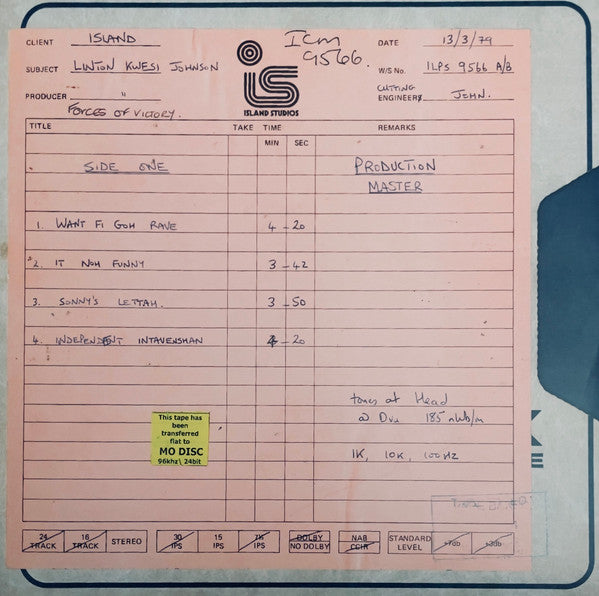 CLIENT ISLAND
ICM 9566.
DATE 13/3/79
SUBJECT LINTON KWESI JOHNSON
W/S No. ILPS 9566 A/B
PRODUCER "
CUTTING ENGINEERS JOHN.
FORCES OF VICTORY.
IS
ISLAND STUDIOS
TITLE TAKE TIME REMARKS
MIN SEC
SIDE ONE PRODUCTION
MASTER
1. WANT FI GOH RAVE 4 - 20
2. IT NOH FUNNY 3 - 42
3. SONNY'S LETTAH. 3 - 50
4. INDEPENDENT INTAVENSHAN 4 - 20
tones at Head
@ Ovu 185 nWb/m
1K, 10K, 100HZ
This tape has
been
transferred
flat to
MO DISC
96khz\ 24bit
24 TRACK 16 TRACK STEREO 30 IPS 15 IPS 7½ IPS DOLBY NO DOLBY NAB CCIR STANDARD LEVEL +7db +3db